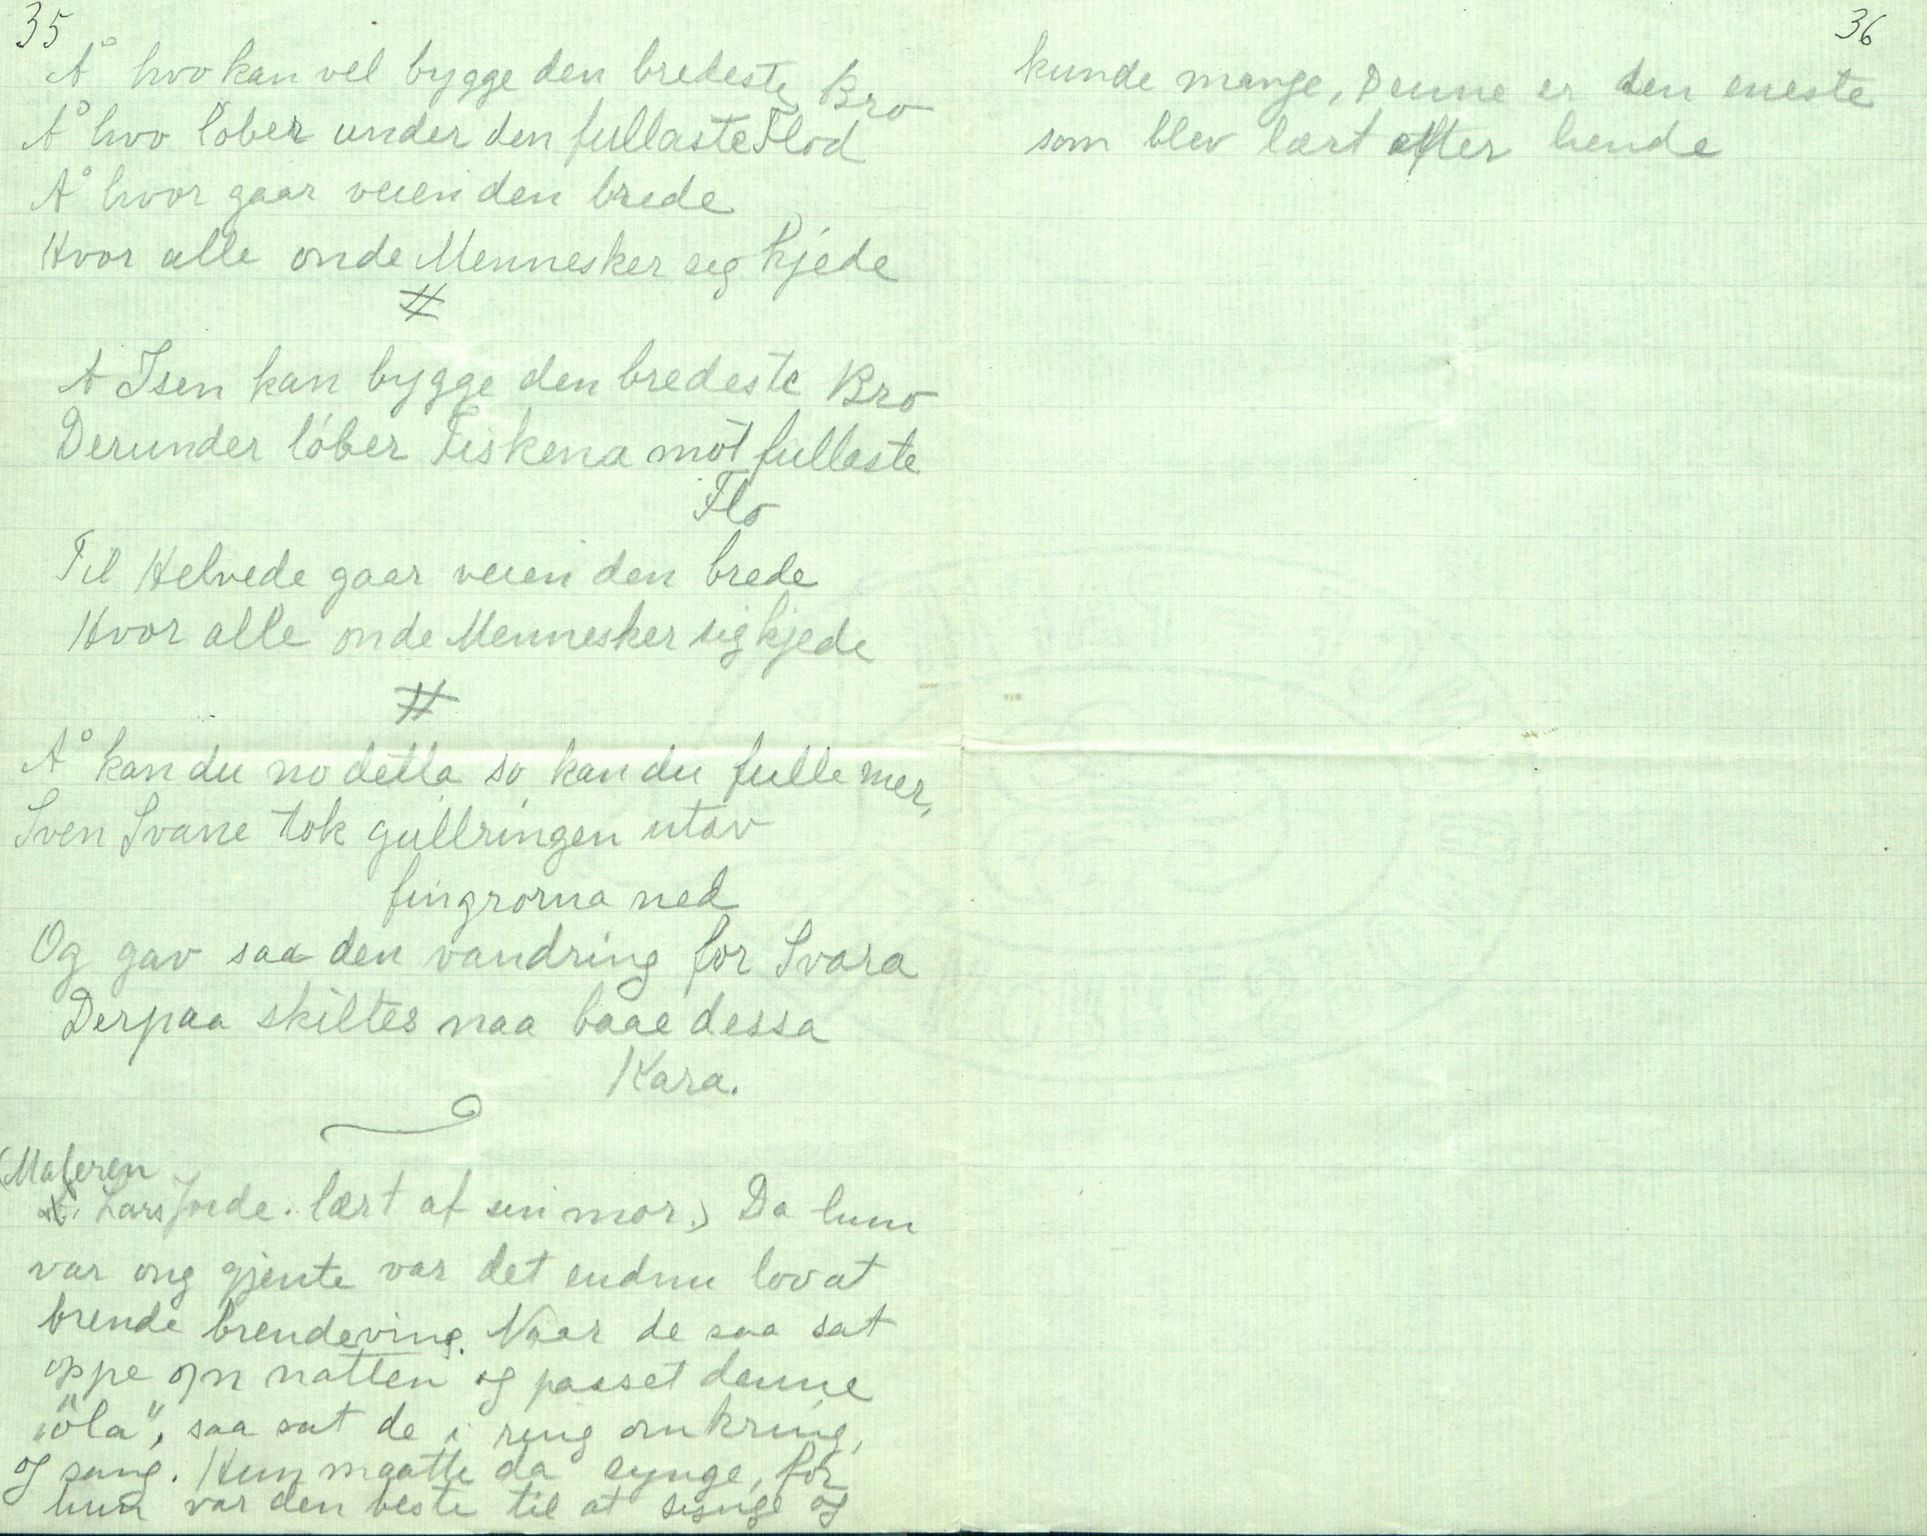 35
Å hvo kan vel bygge den bredeste Bro
Å hvo løber under den fullaste Flod
Å hvor gaar veien den brede
Hvor alle onde Mennesker seg kjede
#
A Isen kan bygge den bredeste Bro
Derunder løber Fiskena mot fullaste
Flo
Til Helvede gaar veien den brede
Hvor alle onde Mennesker sig kjede
#
Å kan du no detta so kan du fulle mer,
Sven Svane tok gullringen utav
fingrorna ned
Og gav saa den vandring for Svara
Derpaa skiltes naa baae dessa
Kara.
(Maleren
Lars Jorde. lært af sin mor.) Da hun
var ong gjente var det endnu lov at
brende brendeving. Naar de saa sat
oppe opn natten og passet denne
"öla", saa sat de i ring omkring,
og sang. Hun maatte da synge, for
hun var den beste til at synge og
36
kunde mange, Denne er den eneste
som blev lært efter hende